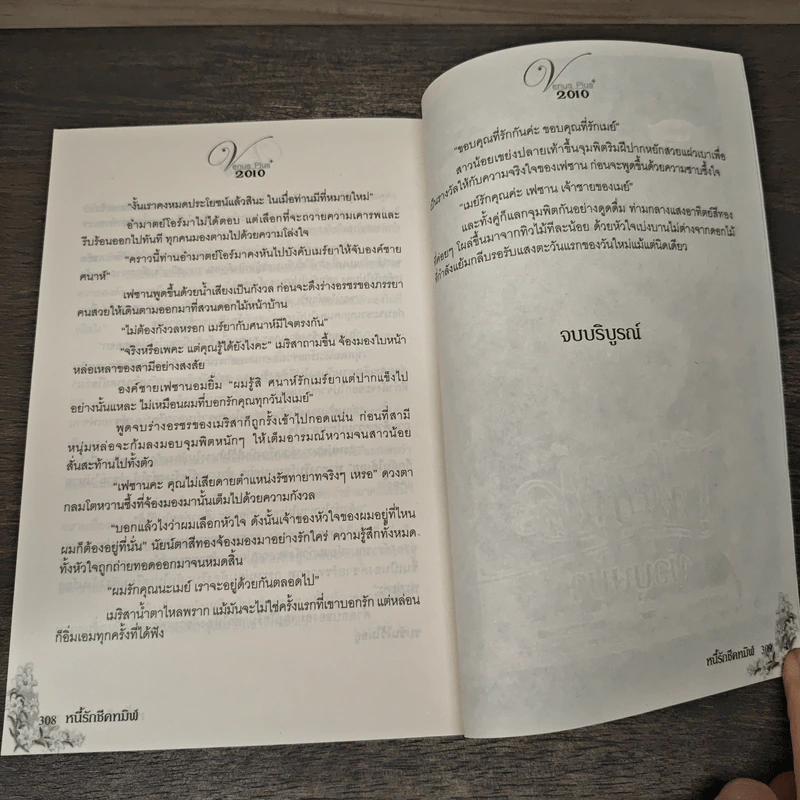 Venus Plus+
2010
"งั้นเราคงหมดประโยชน์แล้วสินะ ในเมื่อท่านมีที่หมายใหม่"
อำมาตย์โอร์มาไม่ได้ตอบ แต่เลือกที่จะถวายความเคารพและ
รีบร้อนออกไปทันที ทุกคนมองตามไปด้วยความโล่งใจ
"คราวนี้ท่านอำมาตย์โอร์มาคงหันไปบังคับเมร์ยาให้จับองค์ชาย
ศนาห์"
เฟซานพูดขึ้นด้วยน้ำเสียงเป็นกังวล ก่อนจะดึงร่างอรชรของภรรยา
คนสวยให้เดินตามออกมาที่สวนดอกไม้หน้าบ้าน
"ไม่ต้องกังวลหรอก เมร์ยากับศนาห์มีใจตรงกัน"
"จริงหรือเพคะ แต่คุณรู้ได้ยังไงคะ" เมริสาถามขึ้น จ้องมองใบหน้า
หล่อเหลาของสามีอย่างสงสัย
องค์ชายเฟซานอมยิ้ม "ผมรู้สิ ศนาห์รักเมร์ยาแต่ปากแข็งไป
อย่างนั้นแหละ ไม่เหมือนผมที่บอกรักคุณทุกวันไงเมย์"
พูดจบร่างอรชรของเมริสาก็ถูกรั้งเข้าไปกอดแน่น ก่อนที่สามี
หนุ่มหล่อจะก้มลงมอบจุมพิตหนักๆ ให้เต็มอารมณ์หวามจนสาวน้อย
สั่นสะท้านไปทั้งตัว
"เฟซานคะ คุณไม่เสียดายตำแหน่งรัชทายาทจริงๆ เหรอ" ดวงตา
กลมโตหวานซึ้งที่จ้องมองมานั้นเต็มไปด้วยความกังวล
"บอกแล้วไงว่าผมเลือกหัวใจ ดังนั้นเจ้าของหัวใจของผมอยู่ที่ไหน
ผมก็ต้องอยู่ที่นั่น" นัยน์ตาสีทองจ้องมองมาอย่างรักใคร่ ความรู้สึกทั้งหมด
ทั้งหัวใจถูกถ่ายทอดออกมาจนหมดสิ้น
"ผมรักคุณนะเมย์ เราจะอยู่ด้วยกันตลอดไป"
เมริสาน้ำตาไหลพราก แม้มันจะไม่ใช่ครั้งแรกที่เขาบอกรัก แต่หล่อน
ก็อิ่มเอมทุกครั้งที่ได้ฟัง
308 หนี้รักชีคทมิฬ
Venus Plus+
2010
"ขอบคุณที่รักกันค่ะ ขอบคุณที่รักเมย์"
สาวน้อยเขย่งปลายเท้าขึ้นจุมพิตริมฝีปากหยักสวยแผ่วเบาเพื่อ
เป็นรางวัลให้กับความจริงใจของเฟซาน ก่อนจะพูดขึ้นด้วยความซาบซึ้งใจ
"เมย์รักคุณค่ะ เฟซาน เจ้าชายของเมย์"
และทั้งคู่ก็แลกจุมพิตกันอย่างดูดดื่ม ท่ามกลางแสงอาทิตย์สีทอง
ที่ค่อยๆ โผล่ขึ้นมาจากทิวไม้ทีละน้อย ด้วยหัวใจเบ่งบานไม่ต่างจากดอกไม้
ที่กำลังแย้มกลีบรอรับแสงตะวันแรกของวันใหม่แม้แต่นิดเดียว
จบบริบูรณ์
หนี้รักชีคทมิฬ